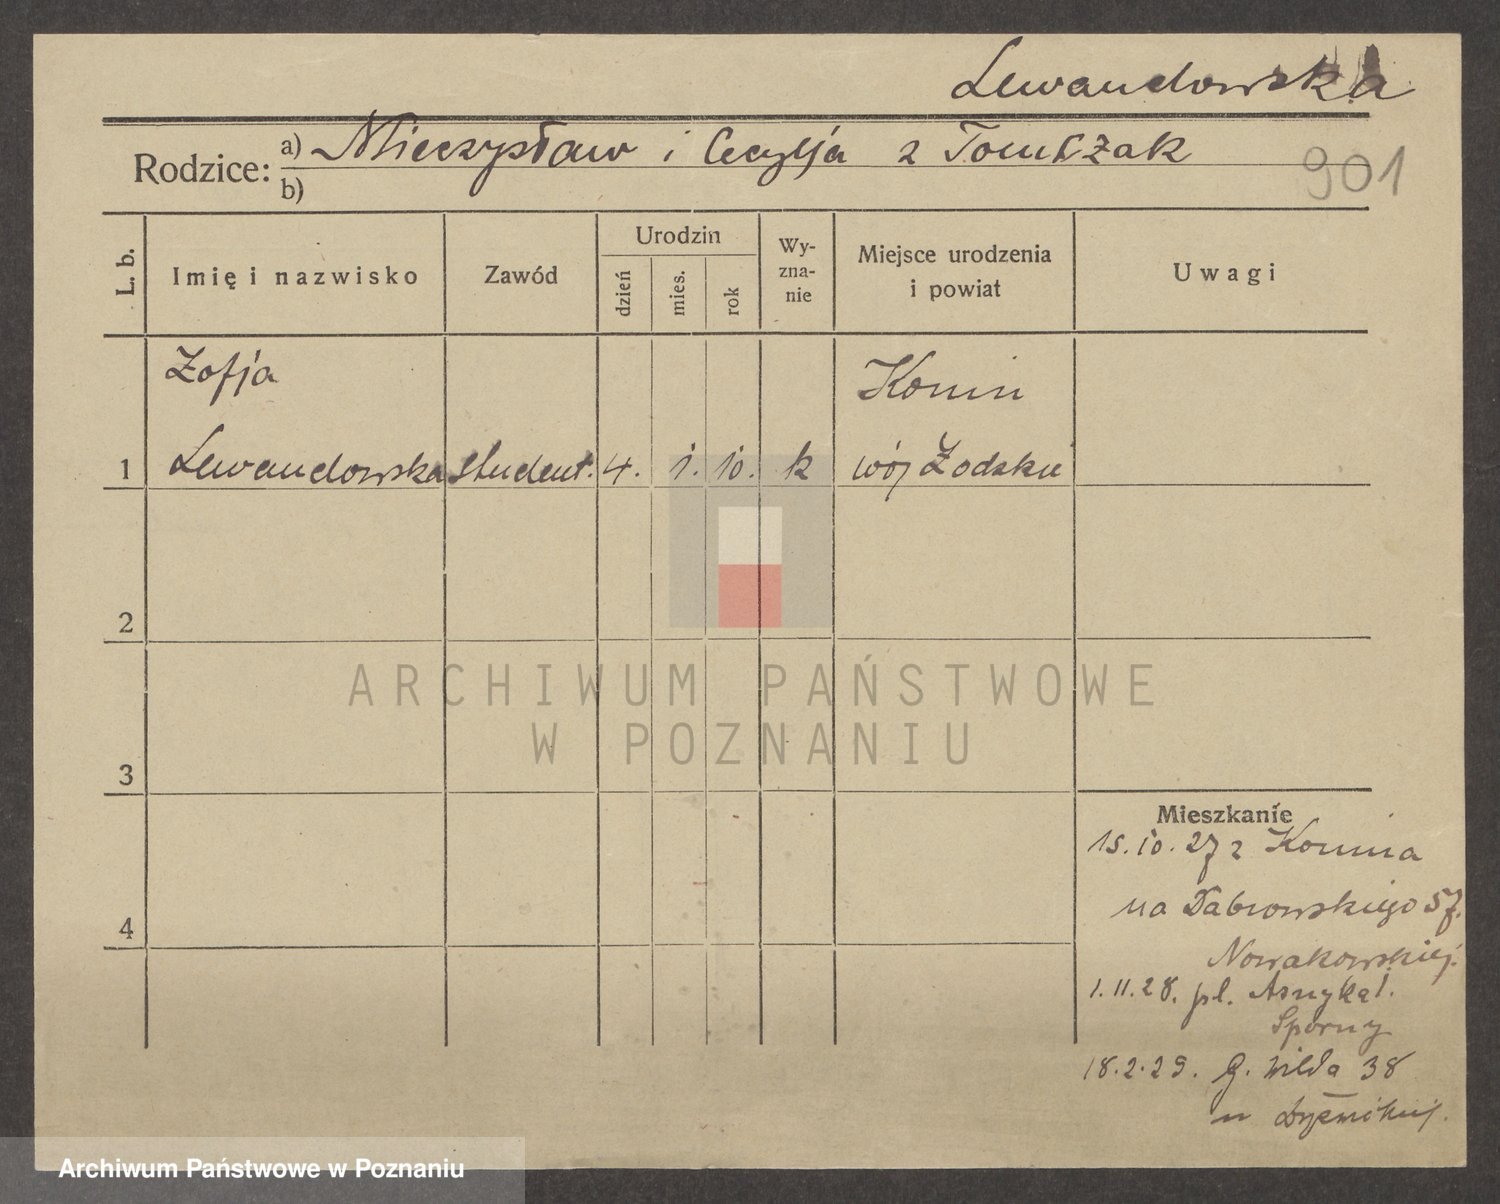 Lewandowska
Rodzice: a) Mieczysław i Cecylja z Tomczak
b)
901
L. b.
Imię i nazwisko
Zawód
Urodzin
dzień
mies.
rok
Wy-
zna-
nie
Miejsce urodzenia
i powiat
Uwagi
Zofja
Konin
1 Lewandowska student. 4. 1. 10. k woj Łodzku
2
ARCHIWUM PAŃSTWOWE
W POZNANIU
3
Mieszkanie
15.10.27 z Konina
na Dabrowskiego 57.
4
Nowakowskiej.
1.11.28. pl. Asnyka 1.
Sporny
18.2.29. G. Wilda 38
u
Archiwum Państwowe w Poznaniu